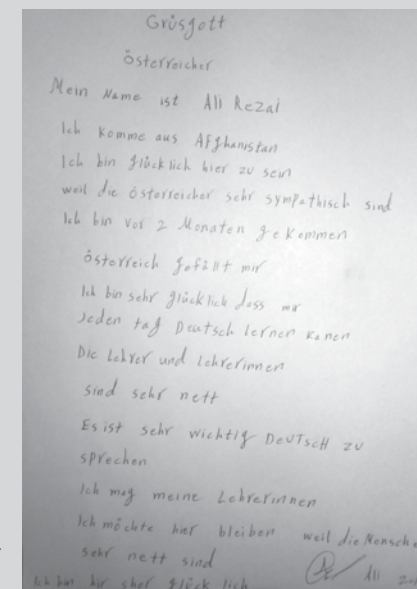 Grüsgott
österreicher
Mein Name ist Ali Rezai
Ich komme aus Afghanistan
Ich bin glücklich hier zu sein
weil die österreicher sehr sympathisch sind
Ich bin vor 2 Monaten gekommen
österreich gefällt mir
Ich bin sehr glücklich dass mir
Jeden tag Deutsch lernen kanen
Die Lehrer und Lehrerinnen
sind sehr nett
Es ist sehr wichtig DeUTscH zu
sprechen
Ich mag meine Lehrerinnen
Ich möchte hier bleiben weil die Mensche
sehr nett sind
Ali
Ich bin hir sher glück lich